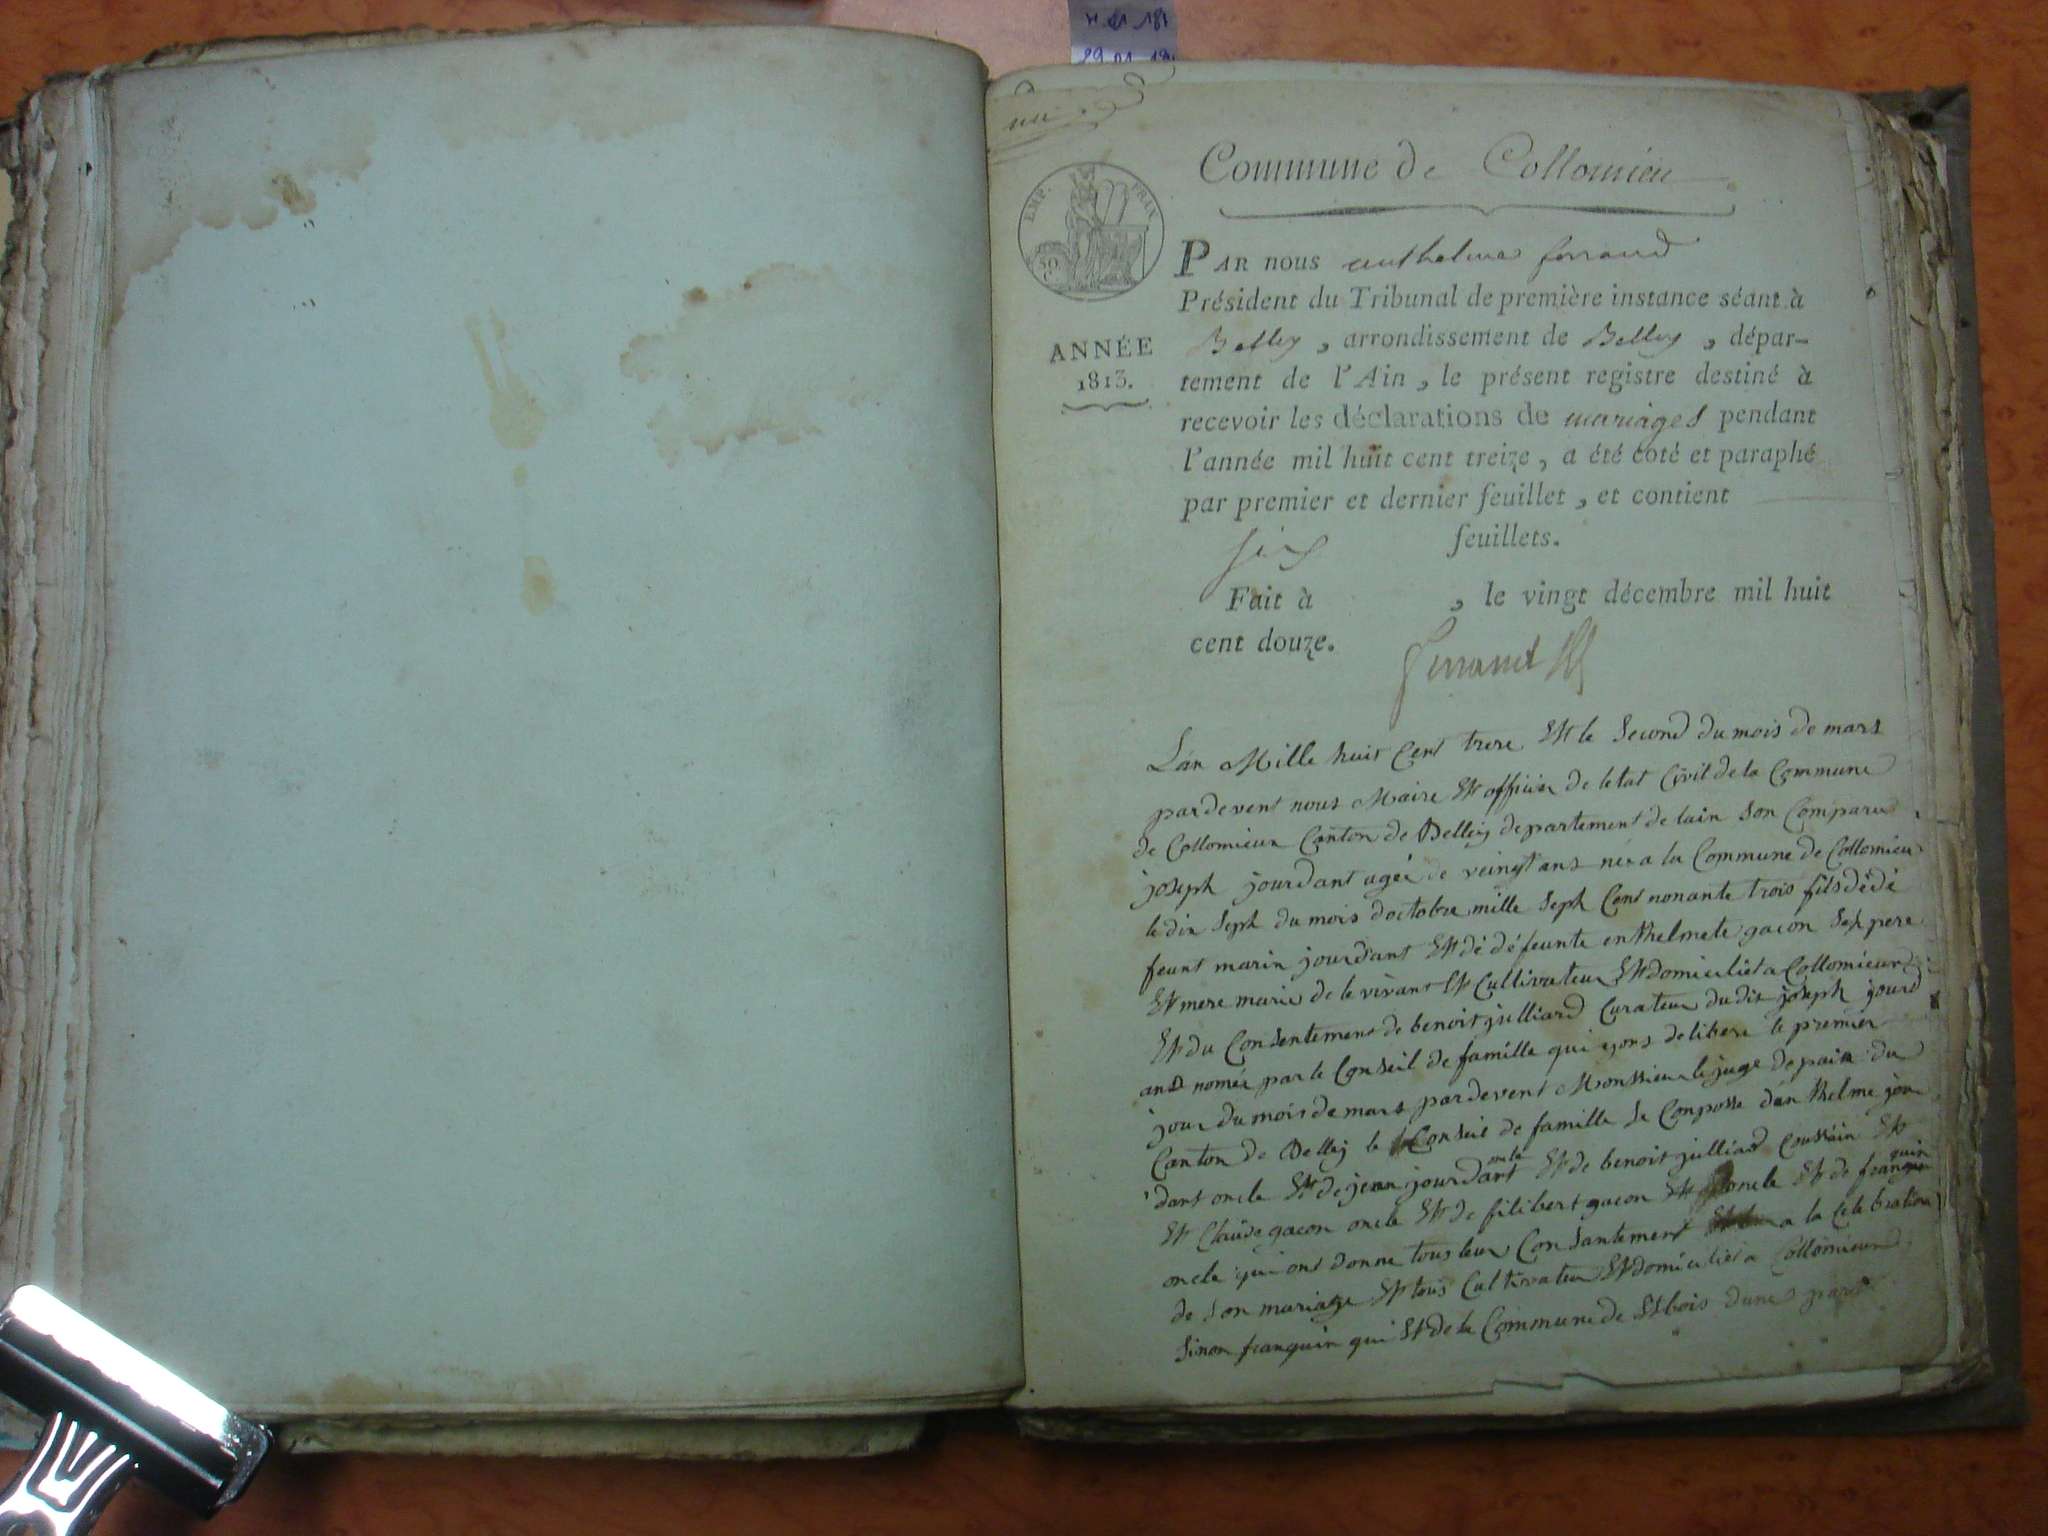 Commune de Collomieu
EMP. FRAN
50
C
PAR nous anthelme ferrand
Président du Tribunal de première instance séant à
ANNÉE
1813.
Belley, arrondissement de Belley, dépar-
tement de l'Ain, le présent registre destiné à
recevoir les déclarations de mariages pendant
l'année mil huit cent treize, a été coté et paraphé
par premier et dernier feuillet, et contient
six feuillets.
Fait à , le vingt décembre mil huit
cent douze.
Ferrand
L'an Mille huit Cent treze Et le Second du mois de mars
pardevent nous Maire Et officier de letat Civil de la Commune
de Collomieux Canton de Belley departement de lain Son Comparu
joseph jourdant agée de veingt ans née a la Commune de Collomieu
le dix Seph du mois doctobre mille Seph Cent nonante trois fils dédé
feunt marin jourdant Et dé défeunte enthelmete gacon Sex pere
Et mere marie de le vivant Et Cultivateur Et domicilié a Collomieux
Et du Consentement de benoit julliard Curateur du dit joseph jourd
and nomée par le Conseil de famille qui ayons delibere le premier
jour du mois de mars pardevent Monssieur le juge de paix du
Canton de Belley le Conseil de famille Se Composse dan thelme jour
dant oncle Et de jean jourdant oncle Et de benoit julliard Coussain Et
Et Claude gacon oncle Et de filibert gacon Et oncle Et de franquin
oncle qui ont donne tous leur Consantement a la Celebration
de Son mariage Et tous Cultivateur Et domicilié a Collomieux
Sinon franquin qui Et de la Commune de St bois dune part